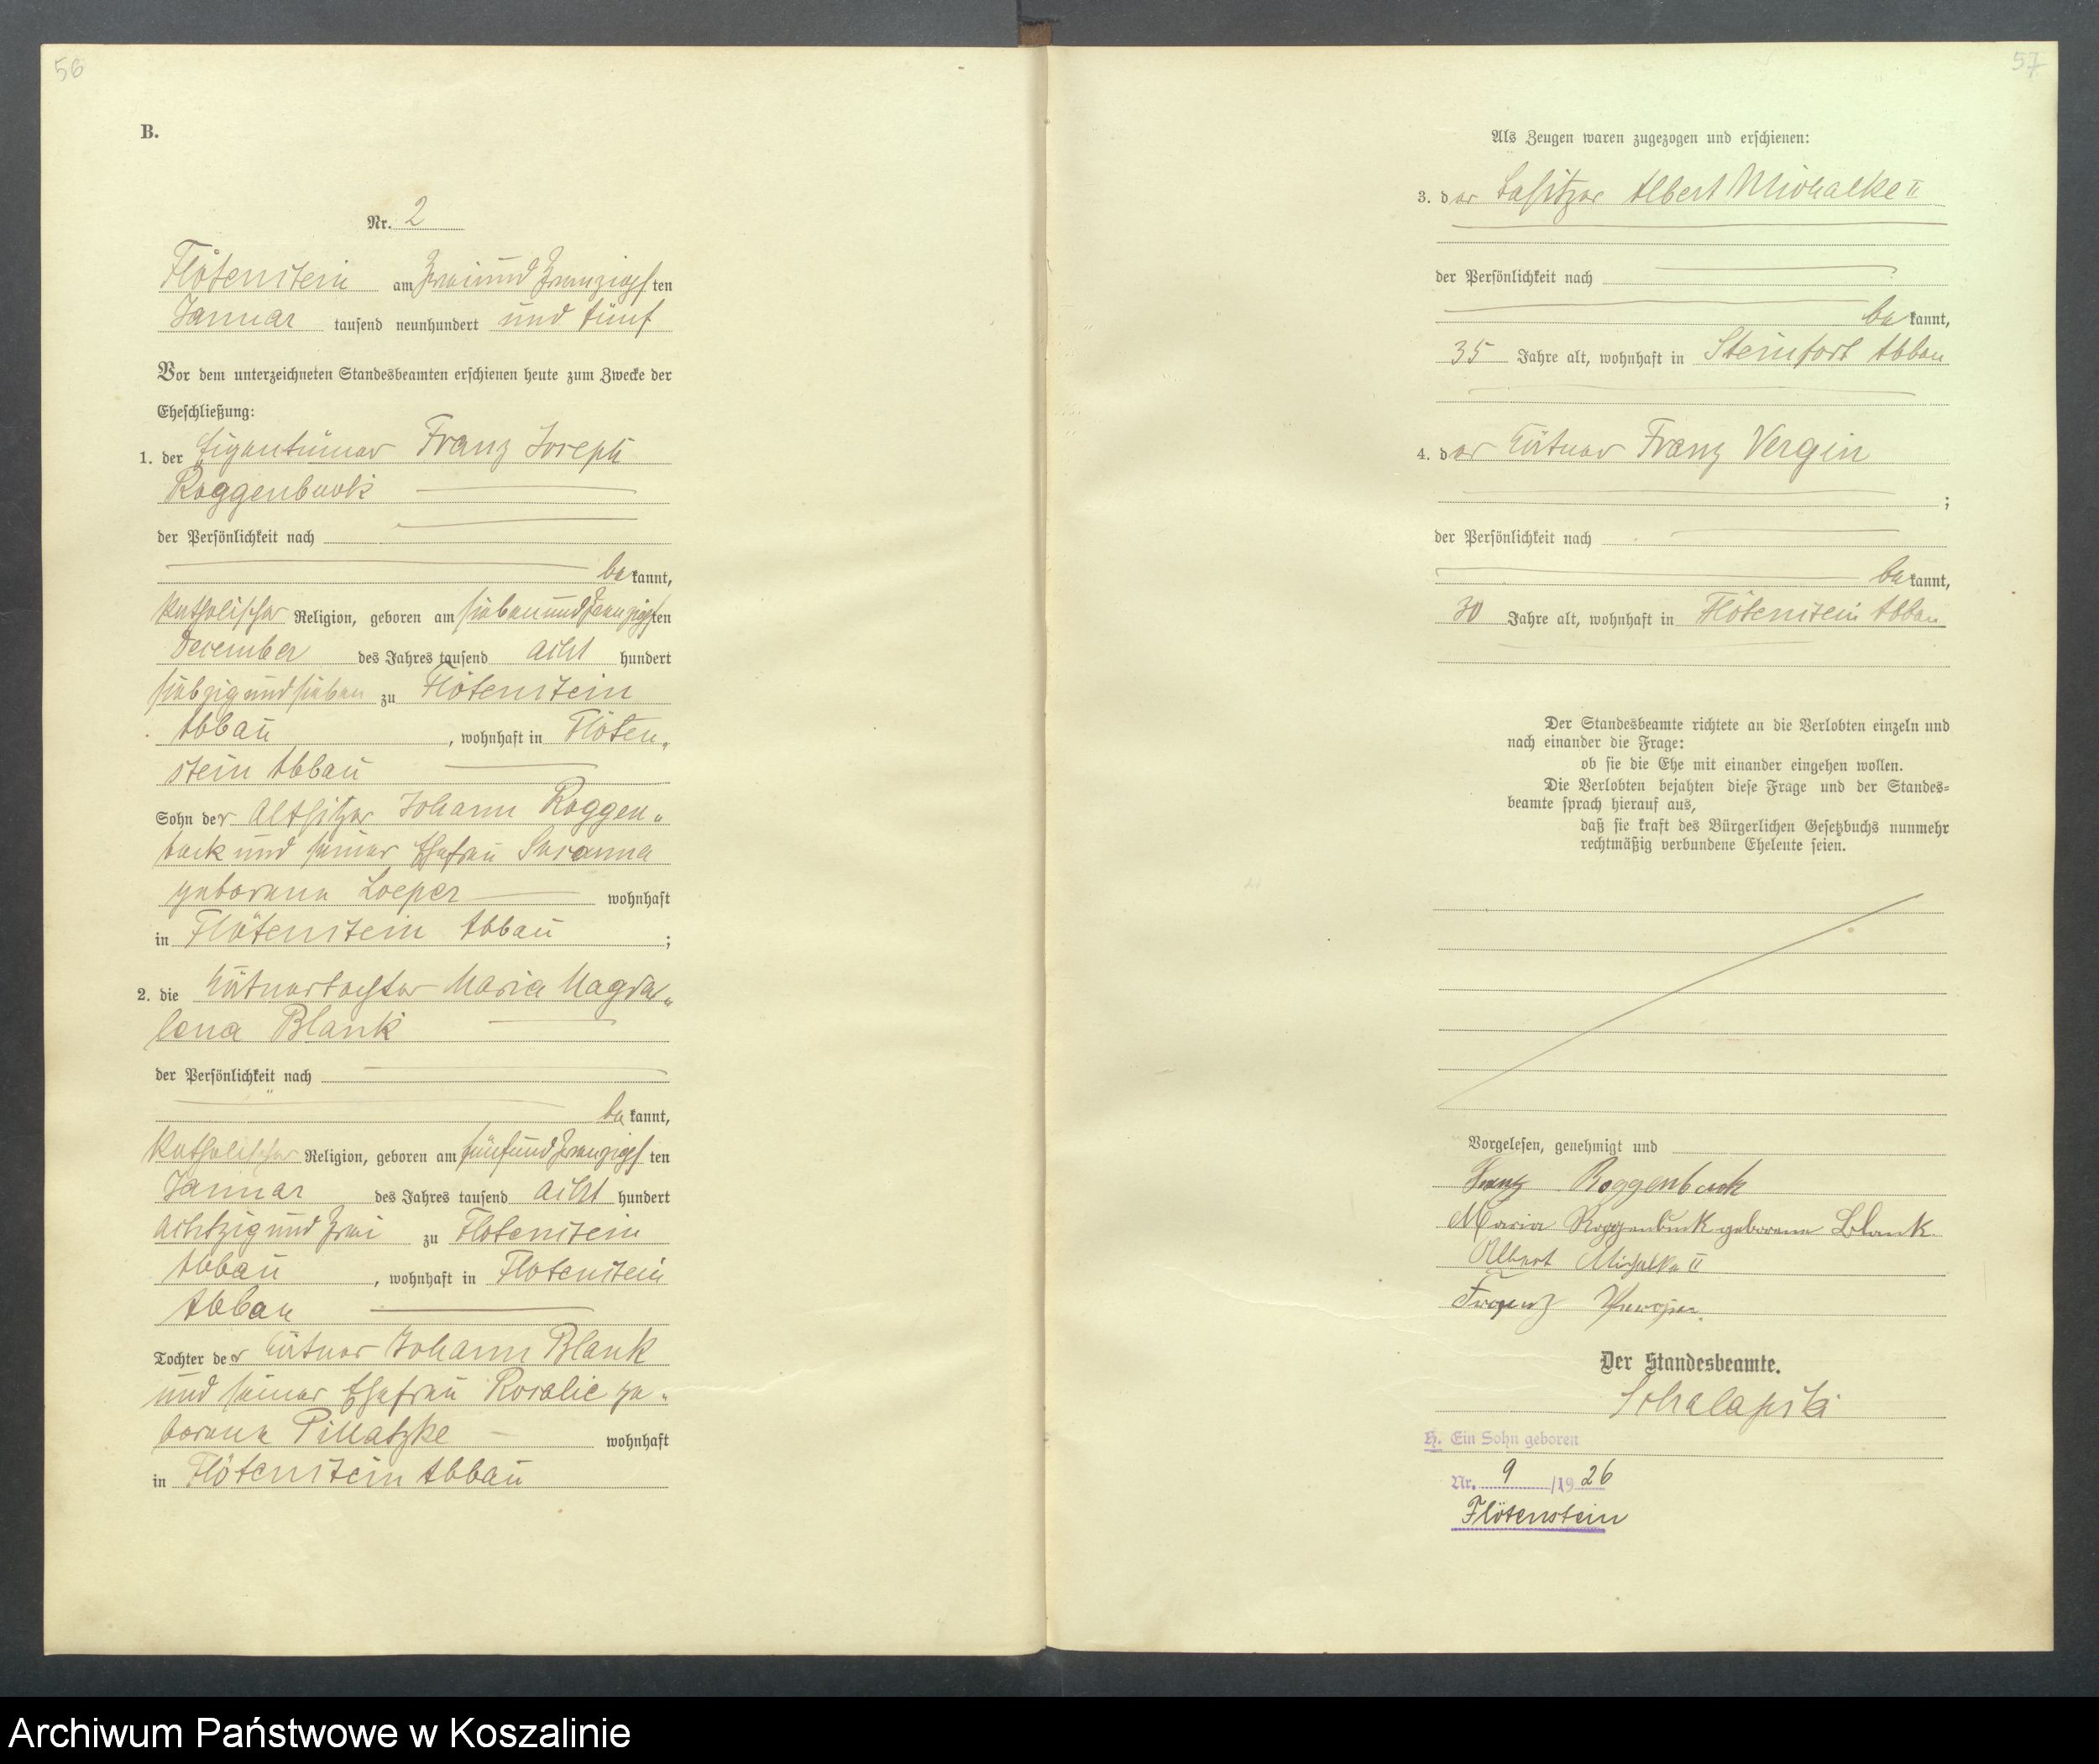 56
B.
Nr. 2
Flötenstein am zweiundzwanzigsten
Januar tausend neunhundert und fünf
Vor dem unterzeichneten Standesbeamten erschienen heute zum Zwecke der
Eheschließung:
1. der Eigentümer Franz Joseph
Roggenbuck
der Persönlichkeit nach
bekannt,
katholischer Religion, geboren am siebenundzwanzigsten
December des Jahres tausend acht hundert
siebzig und sieben zu Flötenstein
Abbau, wohnhaft in Flöten„
stein Abbau
Sohn der Altsitzer Johann Roggen„
buck und seiner Ehefrau Susanna
geborene Loeper wohnhaft
in Flötenstein Abbau;
2. die Kätnertochter Maria Magda„
lena Blank
der Persönlichkeit nach
bekannt,
katholischer Religion, geboren am fünfundzwanzigsten
Januar des Jahres tausend acht hundert
achtzig und zwei zu Flötenstein
Abbau, wohnhaft in Flötenstein
Abbau
Tochter der Kätner Johann Blank
und seiner Ehefrau Rosalie ge„
borene Pillatzke wohnhaft
in Flötenstein Abbau
57
Als Zeugen waren zugezogen und erschienen:
3. der Besitzer Albert Michalke II
der Persönlichkeit nach
bekannt,
35 Jahre alt, wohnhaft in Steinfort Abbau
4. der Kätner Franz Vergin
;
der Persönlichkeit nach
bekannt,
30 Jahre alt, wohnhaft in Flötenstein Abbau
Der Standesbeamte richtete an die Verlobten einzeln und
nach einander die Frage:
ob sie die Ehe mit einander eingehen wollen.
Die Verlobten bejahten diese Frage und der Standes-
beamte sprach hierauf aus,
daß sie kraft des Bürgerlichen Gesetzbuchs nunmehr
rechtmäßig verbundene Eheleute seien.
Vorgelesen, genehmigt und
Franz Roggenbuck
Maria Roggenbuck geborene Blank
Albert Michalke II
Franz Vergin.
Der Standesbeamte.
Schalapski
H. Ein Sohn geboren
Nr. 9 /1926
Flötenstein
Archiwum Państwowe w Koszalinie